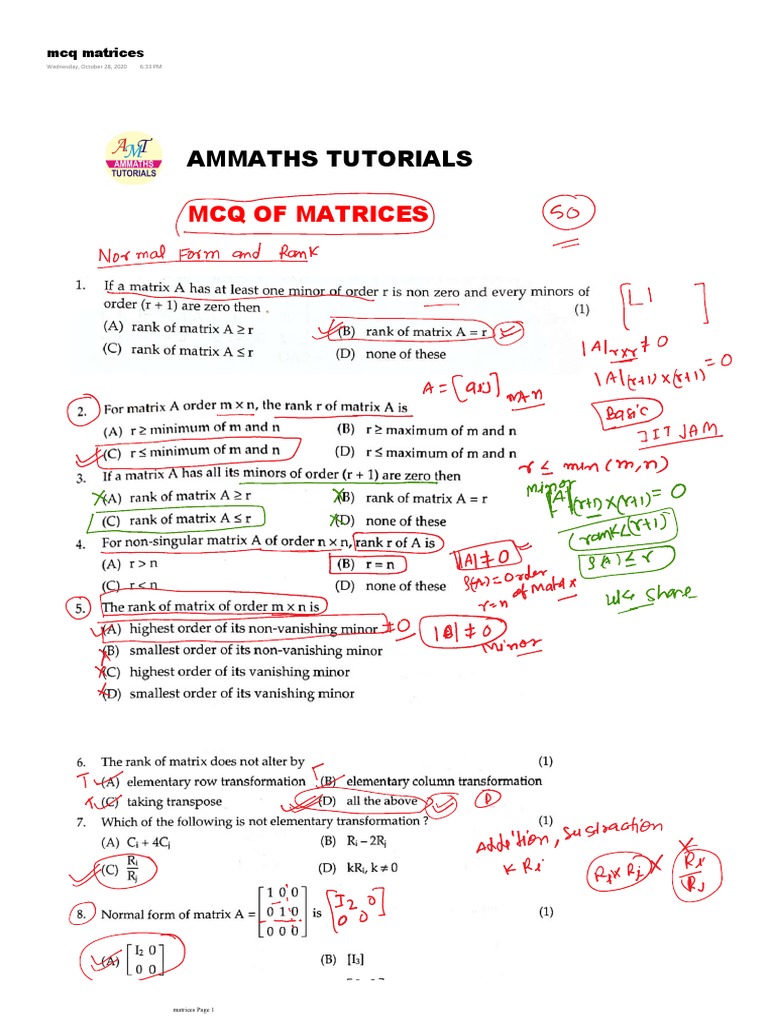 mcq matrices
Wednesday, October 28, 2020 6:33 PM
AMT
AMMATHS
TUTORIALS
AMMATHS TUTORIALS
MCQ OF MATRICES
50
Normal Form and Rank
1. If a matrix A has at least one minor of order r is non zero and every minors of
order (r + 1) are zero then . (1)
(A) rank of matrix A ≥ r (B) rank of matrix A = r
(C) rank of matrix A ≤ r (D) none of these
|A|r×r ≠ 0
|A|(r+1)×(r+1) = 0
A = [aij]m×n
2. For matrix A order m × n, the rank r of matrix A is
(A) r ≥ minimum of m and n (B) r ≥ maximum of m and n
(C) r ≤ minimum of m and n (D) r ≤ maximum of m and n
Basic
IIT JAM
r ≤ min(m,n)
3. If a matrix A has all its minors of order (r + 1) are zero then
(A) rank of matrix A ≥ r (B) rank of matrix A = r
(C) rank of matrix A ≤ r (D) none of these
minor
|A|(r+1)×(r+1) = 0
rank<(r+1)
ρ(A) ≤ r
4. For non-singular matrix A of order n × n, rank r of A is
(A) r > n (B) r = n
(C) r < n (D) none of these
|A| ≠ 0
ρ(A) = order
of matrix
r = n
like share
5. The rank of matrix of order m × n is
(A) highest order of its non-vanishing minor ≠0
(B) smallest order of its non-vanishing minor
(C) highest order of its vanishing minor
(D) smallest order of its vanishing minor
minor
6. The rank of matrix does not alter by (1)
T (A) elementary row transformation (B) elementary column transformation
T (C) taking transpose (D) all the above D
7. Which of the following is not elementary transformation ? (1)
(A) Ci + 4Cj (B) Ri – 2Rj
(C) Ri/Rj (D) kRi, k ≠ 0
Addition, Sustraction
k Ri
Ri × Rj × Ri/Rj ×
8. Normal form of matrix A = [1 0 0 0 1 0 0 0 0] is [I2 0 0 0] (1)
(A) [I2 0 0 0] (B) [I3]
matrices Page 1